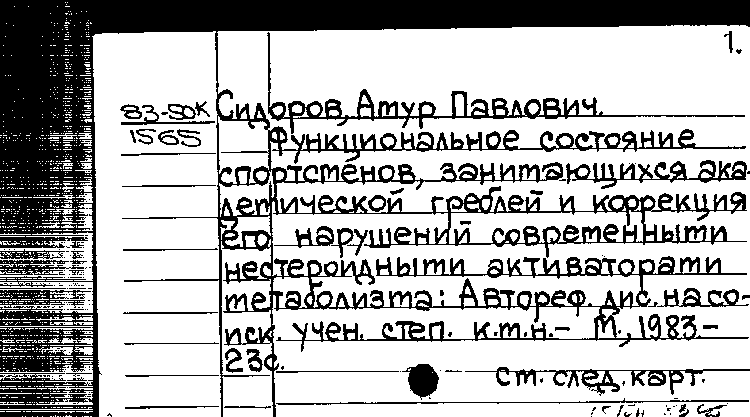 1.
83-50к Сидоров, Амур Павлович.
1565 Функциональное состояние
спортсменов, занимающихся ака-
демической греблей и коррекция
его нарушений современными
нестероидными активаторами
метаболизма: Автореф. дис. на со-
иск. учен. степ. к.м.н.- М., 1983.-
23с.
См. след. карт.